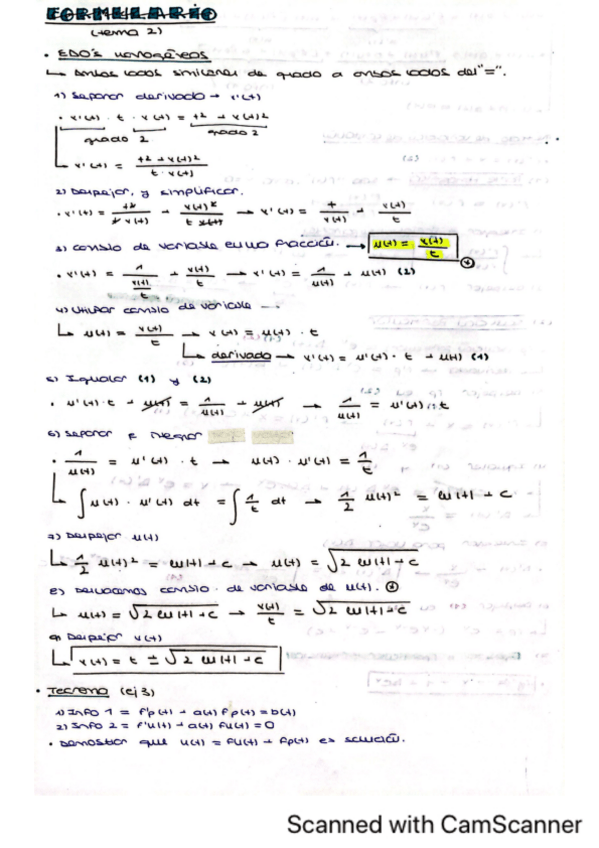 FORMULARIO
(tema 2)
• EDO's homogéneos
↳ Ambos lados similares de grado a ambos lados del "=".
1) Separar derivada → x'(t)
• x'(t) · t · x(t) = t² + x(t)²
grado 2 grado 2
↳ x'(t) = (t² + x(t)²) / (t · x(t))
2) Despejar y simplificar.
• x'(t) = t² / (t x(t)) + x(t)² / (t x(t)) → x'(t) = t / x(t) + x(t) / t
3) Cambio de variable en una fracción. → u(t) = x(t) / t
• x'(t) = 1 / (x(t) / t) + x(t) / t → x'(t) = 1 / u(t) + u(t) (2)
4) Utilizar cambio de variable
↳ u(t) = x(t) / t → x(t) = u(t) · t
↳ derivada → x'(t) = u'(t) · t + u(t) (1)
5) Igualar (1) y (2)
• u'(t) · t + u(t) = 1 / u(t) + u(t) → 1 / u(t) = u'(t) · t
6) Separar e integrar
• 1 / u(t) = u'(t) · t → u(t) · u'(t) = 1 / t
↳ ∫ u(t) · u'(t) dt = ∫ 1/t dt → 1/2 u(t)² = ln|t| + c
7) Despejar u(t)
↳ 1/2 u(t)² = ln|t| + c → u(t) = √(2 ln|t| + c)
8) Deshacemos cambio de variable de u(t).
↳ u(t) = √(2 ln|t| + c) → x(t) / t = √(2 ln|t| + c)
9) Despejar x(t)
↳ x(t) = t ± √(2 ln|t| + c)
• Teorema (ej 3)
1) Info 1 = f'p(t) + a(t) fp(t) = b(t)
2) Info 2 = f'h(t) + a(t) fh(t) = 0
• Demostrar que u(t) = fh(t) + fp(t) es solución.
Scanned with CamScanner